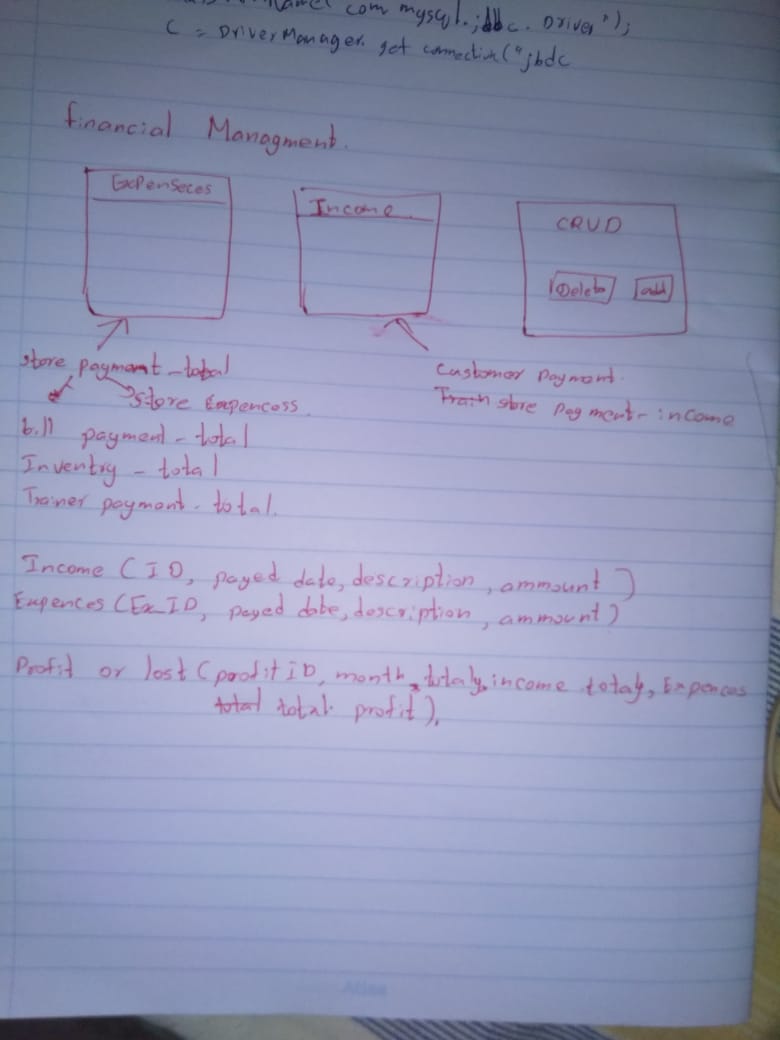 com mysql.jdbc.Driver");
C = DriverManager. get connection("jbdc
financial Managment.
Expenseces
Income
CRUD
Delete
add
store payment - total
store Expencess.
bill payment - total
Inventry - total
Trainer payment - total.
Customer payment.
store payment - income
Income (ID, payed date, description, ammount)
Expences (Ex ID, payed date, description, ammount)
Profit or lost (profit ID, month, income totaly, Expences
total total profit).
Atlas